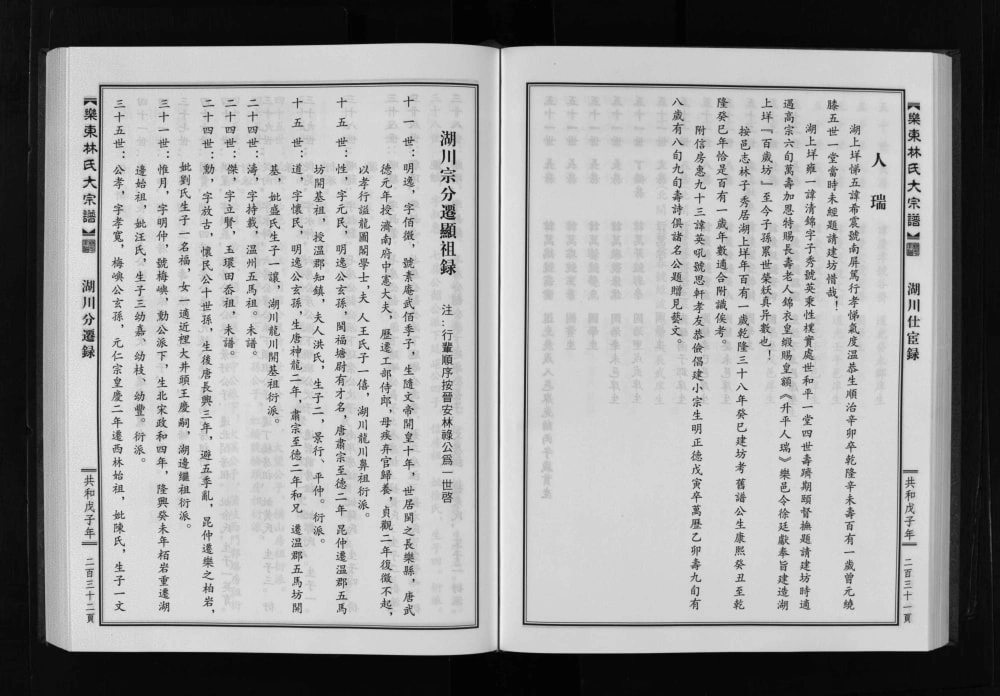 【樂東林氏大宗譜】
湖川仕宦録
共和戊子年
二百三十一頁
人瑞
湖上垟悌五諱希震號南屏篤行孝悌氣度温恭生順治辛卯卒乾隆辛未壽百有一歲曾元繞
膝五世一堂當時未經題請建坊惜哉！
湖上垟雍一諱清錦字子秀號英秉性樸實處世和平一堂四世壽躋期頤督撫題請建坊時適
遇高宗六旬萬壽加恩特賜長壽老人錦衣皇緞賜皇額《升平人瑞》樂邑令徐廷獻奉旨建造湖
上垟『百歲坊』至今子孫累世榮妖真异數也！
按邑志林子秀居湖上垟年百有一歲乾隆三十八年癸巳建坊考舊譜公生康熙癸丑至乾
隆癸巳年恰是百有一歲年數適合附識俟考。
附信房惠九十三諱英吼號思軒孝友恭儉倡建小宗生明正德戊寅卒萬歷乙卯壽九旬有
八歲有八旬九旬壽詩俱諸名公題贈見藝文。
湖川宗分遷顯祖録
注：行輩順序按晉安林祿公爲一世啓
十一世：明逸，字佰徽，號素庵武佰季子，生隨文帝開皇十年，世居閩之長樂縣，唐武
德元年授濟南府中憲大夫，歷遷工部侍郎，母疾弃官歸養，貞觀二年復徵不起，
以孝行謚龍圖閣學士，夫人王氏子一僖，湖川龍川鼻祖衍派。
十五世：性，字元民，明逸公玄孫，閩福塘尉有才名，唐肅宗至德二年昆仲遷温郡五馬
坊開基祖，授温郡知鎮，夫人洪氏，生子二，景行、平仲。衍派。
十五世：道，字懷民，明逸公玄孫，生唐神龍二年，肅宗至德二年和兄遷温郡五馬坊開
基，妣盛氏生子一讓，湖川龍川開基祖衍派。
二十四世：濤，字持載，温州五馬祖。未譜。
二十四世：傑，字立賢，玉環田岙祖，未譜。
二十四世：勳，字放古，懷民公十世孫，生後唐長興三年，避五季亂，昆仲遷樂之柏岩，
妣劉氏生子一名福，女一適近裡大井頭王慶嗣，湖邊繼祖衍派。
三十一世：惟月，字明仲，號梅嶼，勳公派下，生北宋政和四年，隆興癸未年栢岩重遷湖
邊始祖，妣汪氏，生子三幼嘉、幼枝、幼豐。衍派。
三十五世：公孝，字孝寬，梅嶼公玄孫，元仁宗皇慶二年遷西林始祖，妣陳氏，生子一文
【樂東林氏大宗譜】
湖川分遷録
共和戊子年
二百三十二頁